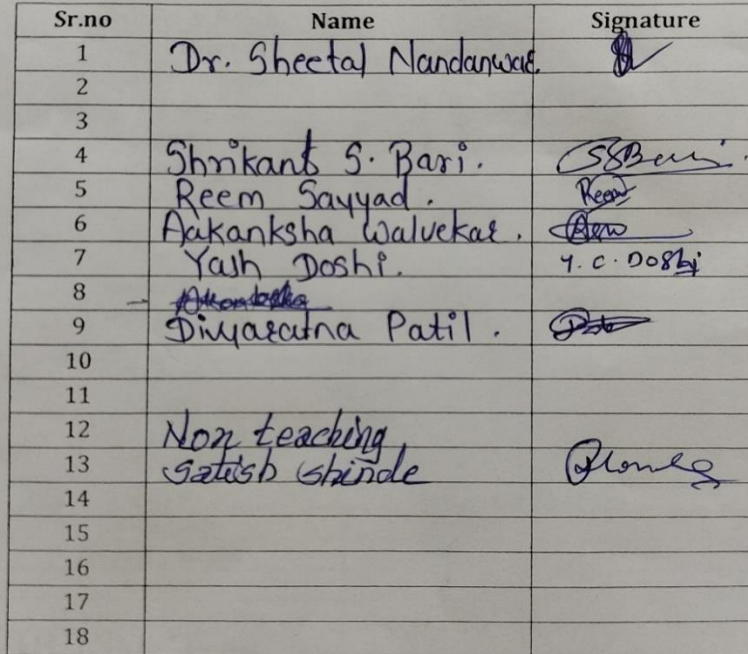 Sr.no Name Signature
1 Dr. Sheetal Nandanwar.
2
3
4 Shrikant S. Bari. SSBari
5 Reem Sayyad. Reem
6 Aakanksha Walvekar.
7 Yash Doshi. Y. C. Doshi
8
9 Divyaratna Patil.
10
11
12 Non teaching
13 Satish Shinde
14
15
16
17
18